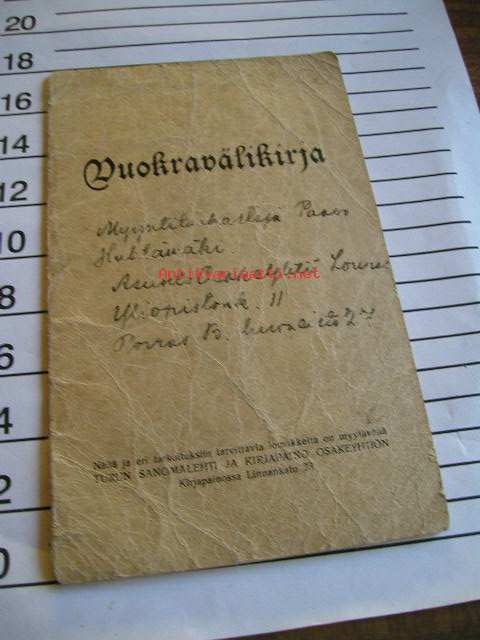 20
18
16
14
12
10
8
6
4
2
0
Vuokravälikirja
Paavo
Huhtamäki
Yliopistonk. 11
Porras B. huoneisto 27
Antikvariaatti.net
Näitä ja eri tarkoituksiin tarvittavia lomakkeita on myytävänä
TURUN SANOMALEHTI JA KIRJAPAINO OSAKEYHTIÖN
Kirjapainossa Linnankatu 23